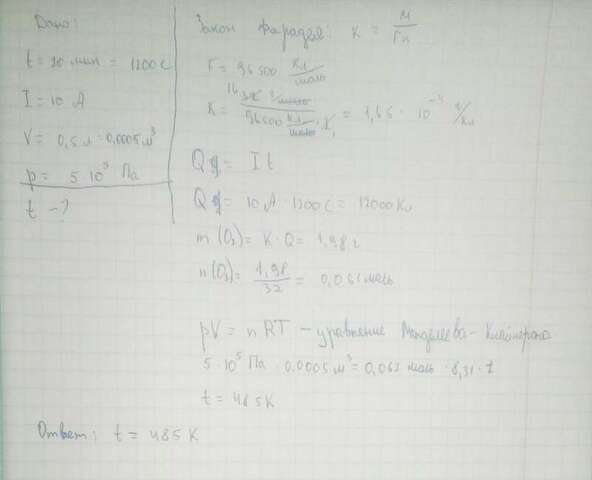 Дано:
t = 20 мин = 1200 С
I = 10 А
V = 0,5 л = 0,0005 м³
p = 5 · 10⁵ Па
t - ?
Закон Фарадея: K = M / Fn
F = 96500 Кл/моль
= 1,65 · 10⁻⁴ г/Кл
Q = I t
Q = 10 А · 1200 С = 12000 Кл
m (O₂) = K · Q = 1,98 г
n (O₂) = 1,98 / 32 = 0,061 моль
pV = nRT - уравнение Менделеева - Клайперона
5 · 10⁵ Па · 0.0005 м³ = 0,061 моль · 8,31 · t
t = 485 K
Ответ: t = 485 K